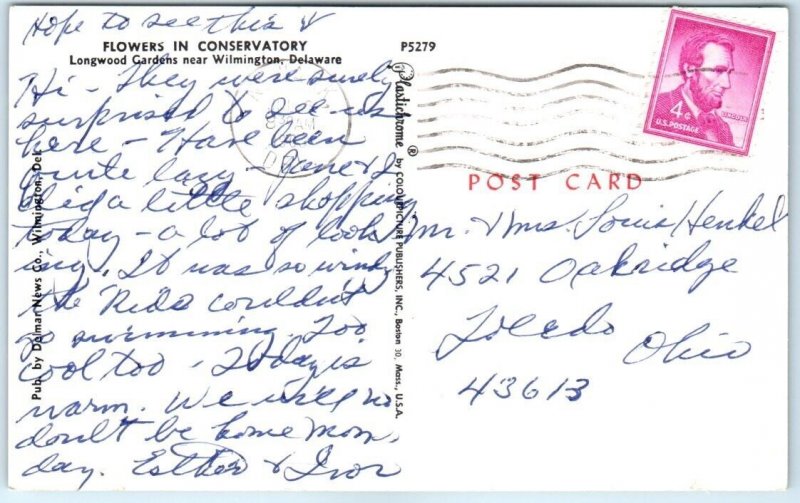 Hope to see this &
FLOWERS IN CONSERVATORY
Longwood Gardens near Wilmington, Delaware
P5279
Hi - They were surely
surprised to see us
here - Have been
quite lazy - Jane & I
did a little shopping
today - a lot of look
ing. It was so windy
the kids couldn't
go swimming. Too
cool too - Today is
warm. We will no
doubt be home Mon
day. Esther & Ivor
Pub. by Delmar News Co., Wilmington, Del.
Plastichrome ® by COLOURPICTURE PUBLISHERS, INC., Boston 30, Mass., U.S.A.
4¢
LINCOLN
U.S. POSTAGE
POST CARD
Mr. & Mrs. Louis Henkel
4521 Oakridge
Toledo
Ohio
43613